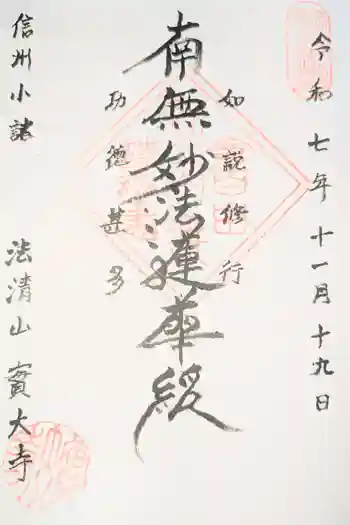 令和七年十一月十九日
如説修行
南無妙法蓮華経
功徳甚多
信州小諸
法清山 實大寺